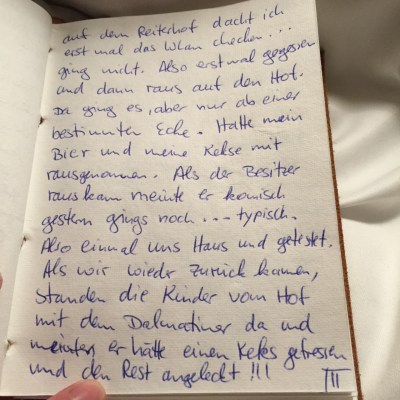 auf dem Reiterhof dacht ich
erst mal das Wlan checken...
ging nicht. Also erstmal gegessen
und dann raus auf den Hof.
Da ging es, aber nur ab einer
bestimmten Ecke. Hatte mein
Bier und meine Kekse mit
rausgenommen. Als der Besitzer
raus kam meinte er komisch
gestern gings noch... typisch.
Also einmal ums Haus und getestet.
Als wir wieder zurück kamen,
standen die Kinder vom Hof
mit dem Dalmatiner da und
meinten er hätte einen Keks gefressen
und den Rest angeleckt!!!
III